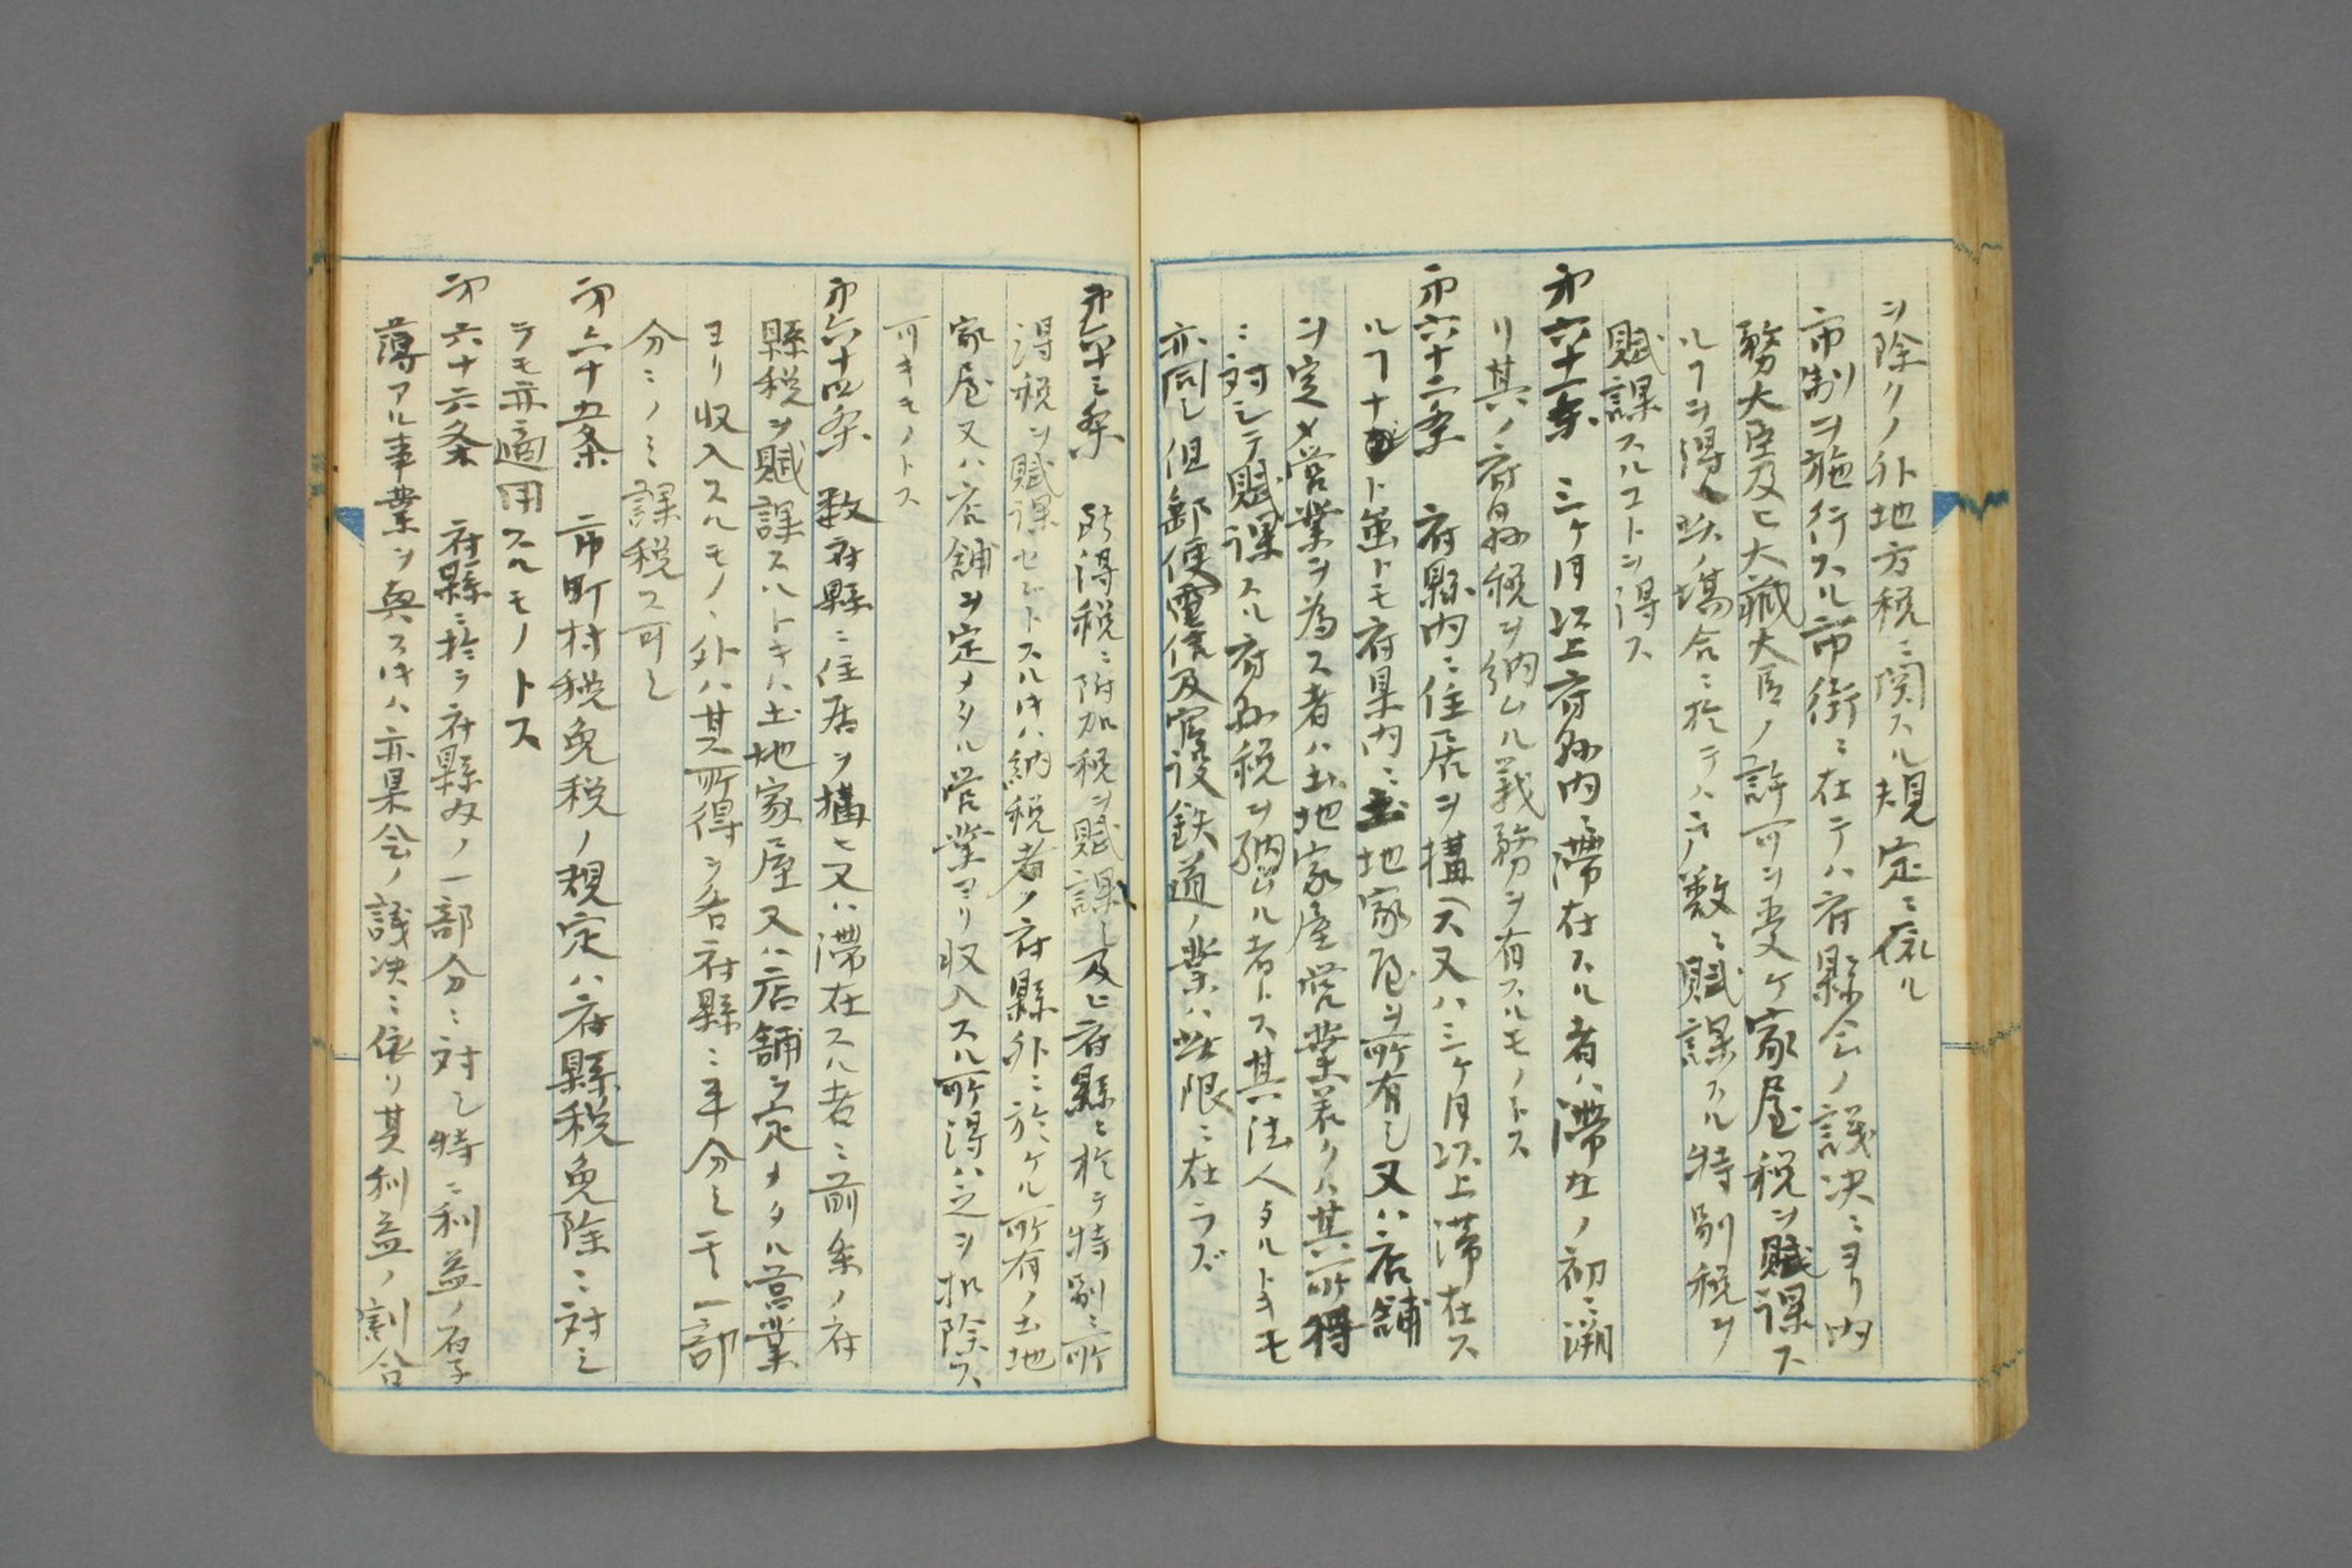 ヲ除クノ外地方税ニ関スル規定ニ依ル
市制ヲ施行スル市街ニ在テハ府縣会ノ議決ニヨリ内
務大臣及ヒ大藏大臣ノ許可ヲ受ケ家屋税ヲ賦課ス
ルヿヲ得此ノ場合ニ於テハ戸数ニ賦課スル特別税ヲ
賦課スルコトヲ得ス
第六十一条 三ケ月以上府縣内ニ滞在スル者ハ滞在ノ初ニ溯
リ其ノ府縣税ヲ納ムル義務ヲ有スルモノトス
第六十二条 府縣内ニ住居ヲ構ヘス又ハ三ケ月以上滞在ス
ルヿナシト虽トモ府県内ニ土地家屋ヲ所有シ又ハ店舗
ヲ定メ営業ヲ為ス者ハ土地家屋営業若クハ其所得
ニ対シテ賦課スル府縣税ヲ納ムル者トス其法人タルトキモ
亦同シ但郵便電信及官設鉄道ノ業ハ此限ニ在ラズ
第六十三条 所得税ニ附加税ヲ賦課シ及ヒ府縣ニ於テ特別ニ所
得税ヲ賦課セントスル片ハ納税者ノ府縣外ニ於ケル所有ノ土地
家屋又ハ店舗ヲ定メタル営業ヨリ収入スル所得ハ之ヲ扣除ス
可キモノトス
第六十四条 数府縣ニ住居ヲ構ヒ又ハ滞在スル者ニ前条ノ府
縣税ヲ賦課スルトキハ土地家屋又ハ店舗ヲ定メタル営業
ヨリ収入スルモノヽ外ハ其所得ヲ各府縣ニ平分シ其一部
分ニノミ課税ス可シ
第六十五条 市町村税免税ノ規定ハ府縣税免除ニ対シ
テモ亦適用スルモノトス
第六十六条 府縣ニ於テ府縣内ノ一部分ニ対シ特ニ利益ノ厚
薄アル事業ヲ興ス片ハ亦県会ノ議決ニ依リ其利益ノ割合